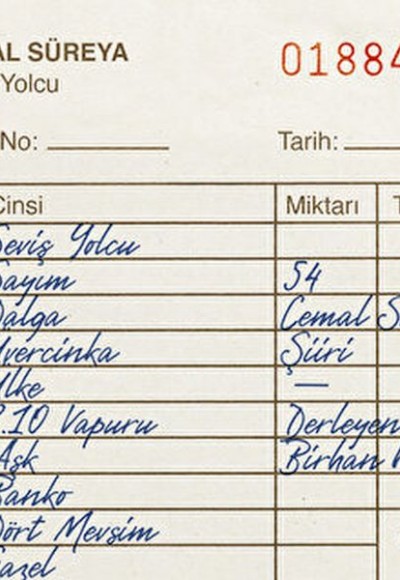 AL SÜREYA
Yolcu
01884
No:
Tarih:
Cinsi Miktarı T
Seviş Yolcu
Sayım 54
Dalga Cemal S
Üvercinka Şiiri
Ülke —
8.10 Vapuru Derleyen
Aşk Birhan K
Banko
Dört Mevsim
Gazel